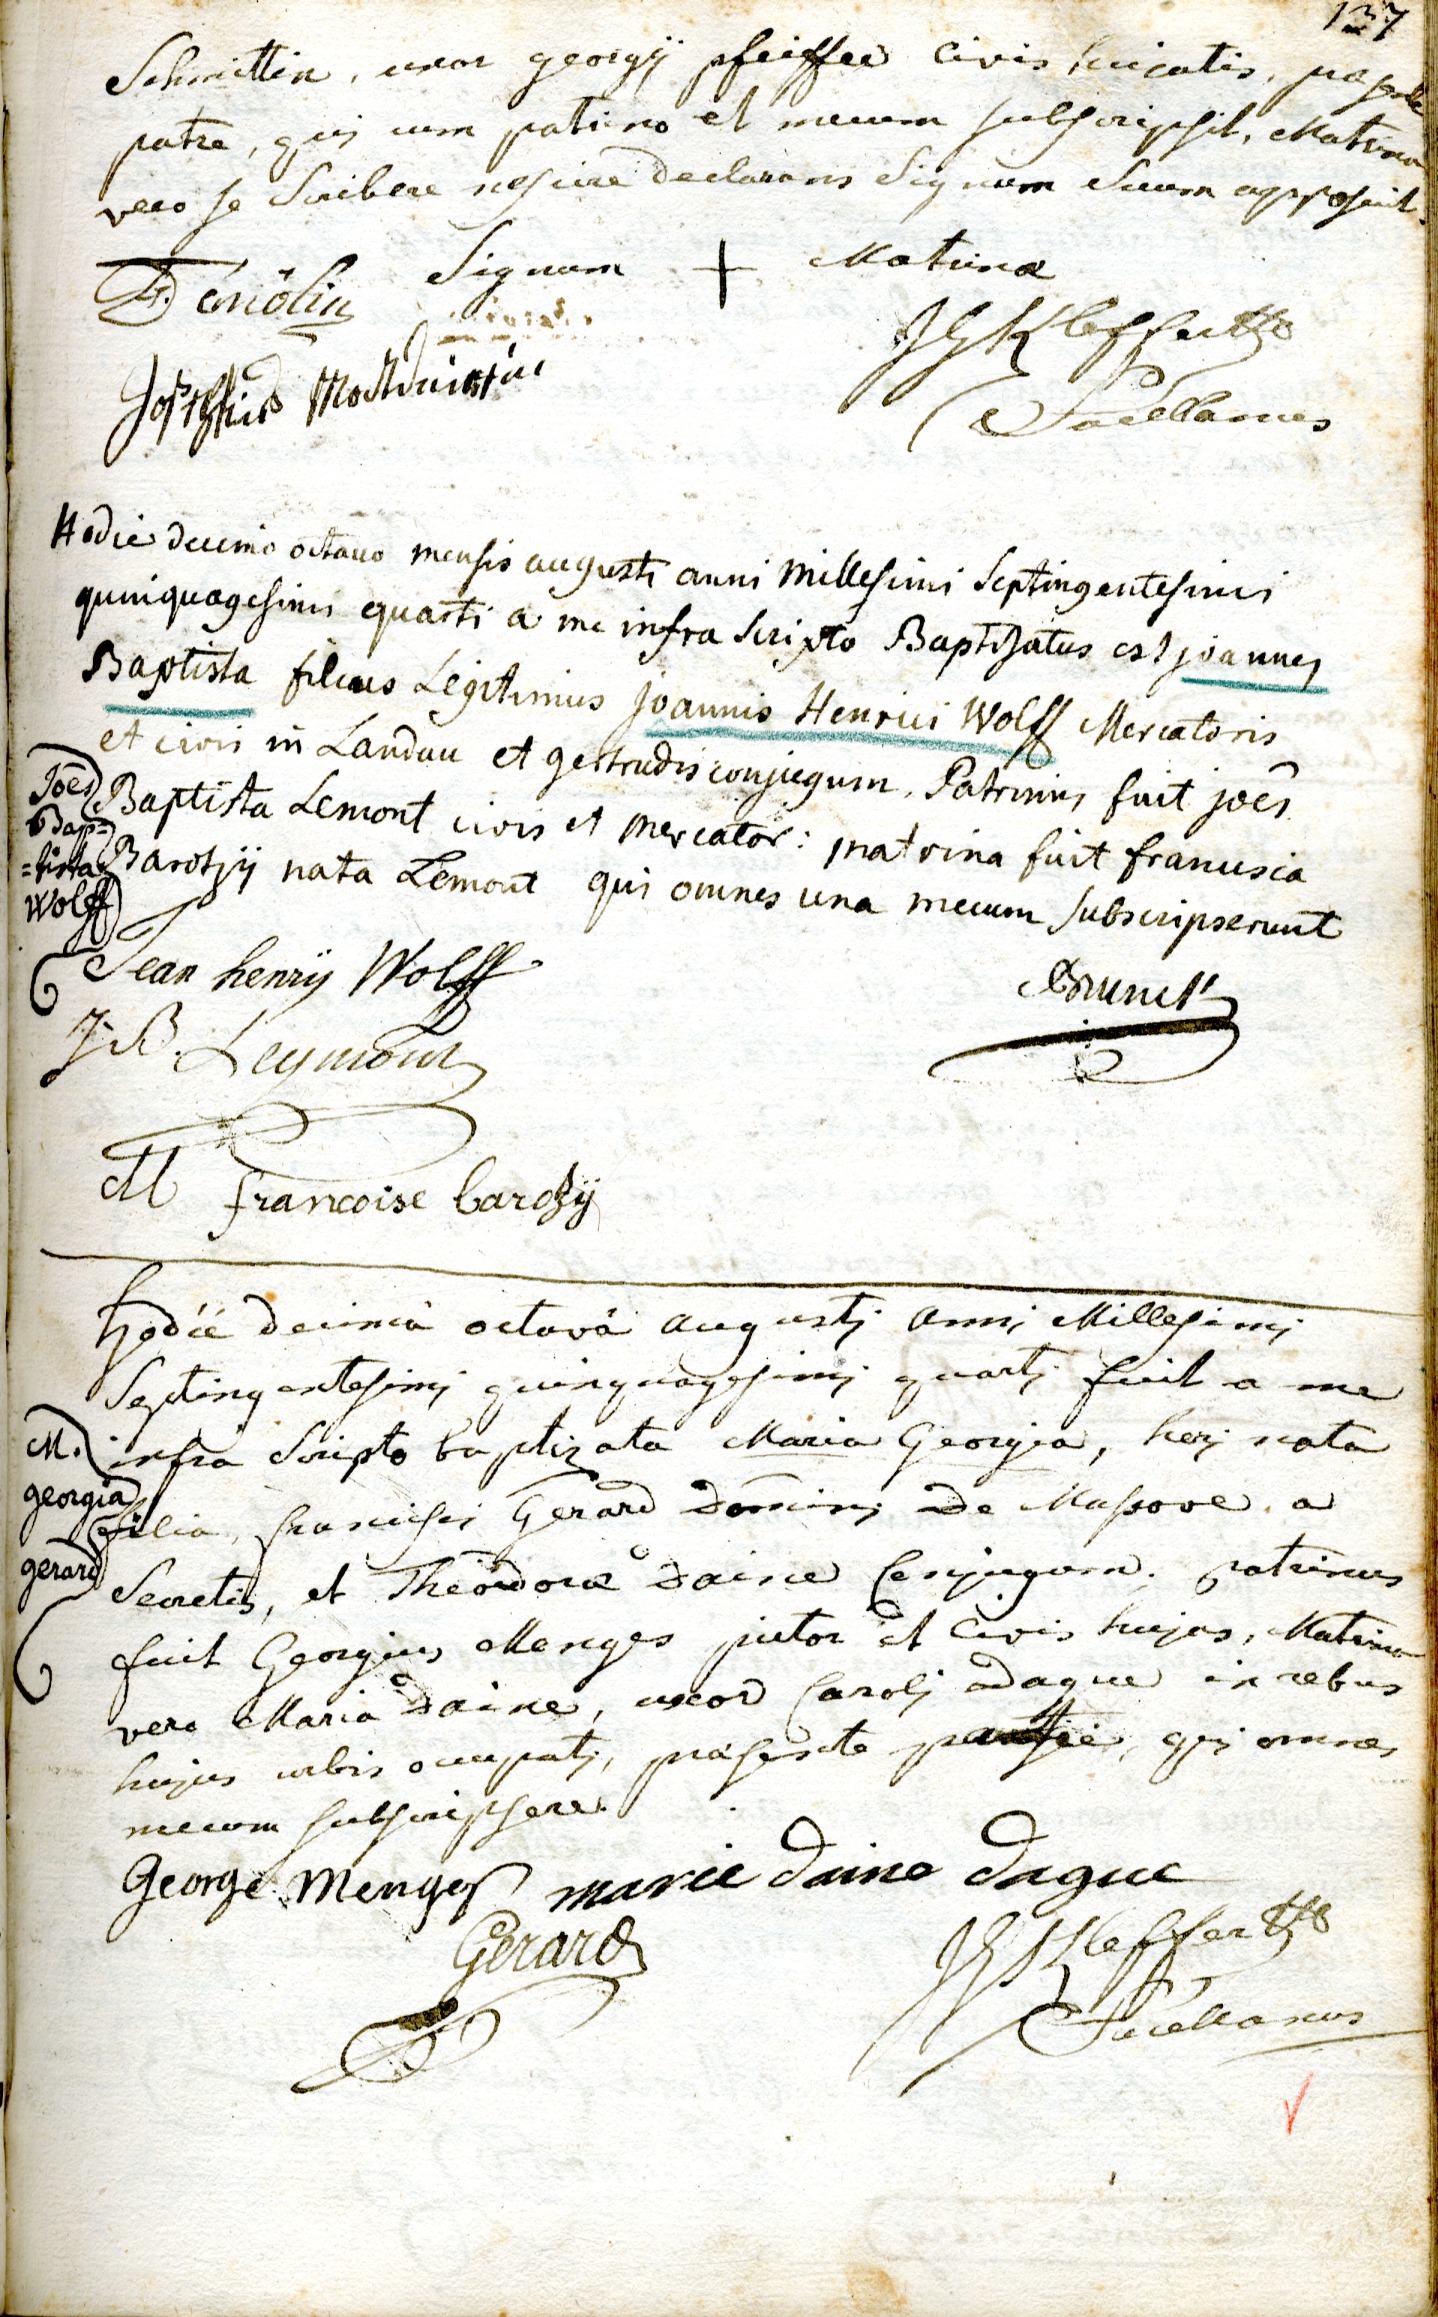 137
Schmittin, uxor georgij pfeiffer civis hujatis, præsente
patre, qui cum patrino et mecum subscripsit, Matrina
vero se Scribere nescire declarans Signum Suum apposuit.
Signum + Matrinæ
Josephus
JG Kleffer
Sacellanus
Hodie decimo octavo mensis augusti anni Millesimi Septingentesimi
quinquagesimi quarti a me infra Scripto Baptisatus est joannes
Baptista filius Legitimus joannis Henrici Wolff Mercatoris
et civis in Landau et gertrudis conjugum. Patrinus fuit joês
Baptista Lemont civis et mercator: matrina fuit francisca
Barozÿ nata Lemont qui omnes una mecum subscripserunt
Joês
bap=
=tista
Wolff
Jean henrÿ Wolff
Brunck
J. B. Leymont
M francoise barozÿ
hodie decimâ octavâ augustj annj Millesimj
Septingentesimj quinquagesimj quartj fuit a me
infra Scripto baptizata Maria Georgia, herj nata
filia, francisci Gerard Domini De Massove a
Secretis, et Theodoræ Daine Conjugum. patrinus
fuit Georgius Menges pictor et Civis hujas, Matrina
vero Maria Daine, uxor Carolj Dague in rebus
hujus urbis occupatj, præsente patre, qui omnes
mecum subscripsere.
M.
georgia
gerard
George Menges marie daine dague
Gerard
JG Kleffer
Sacellanus